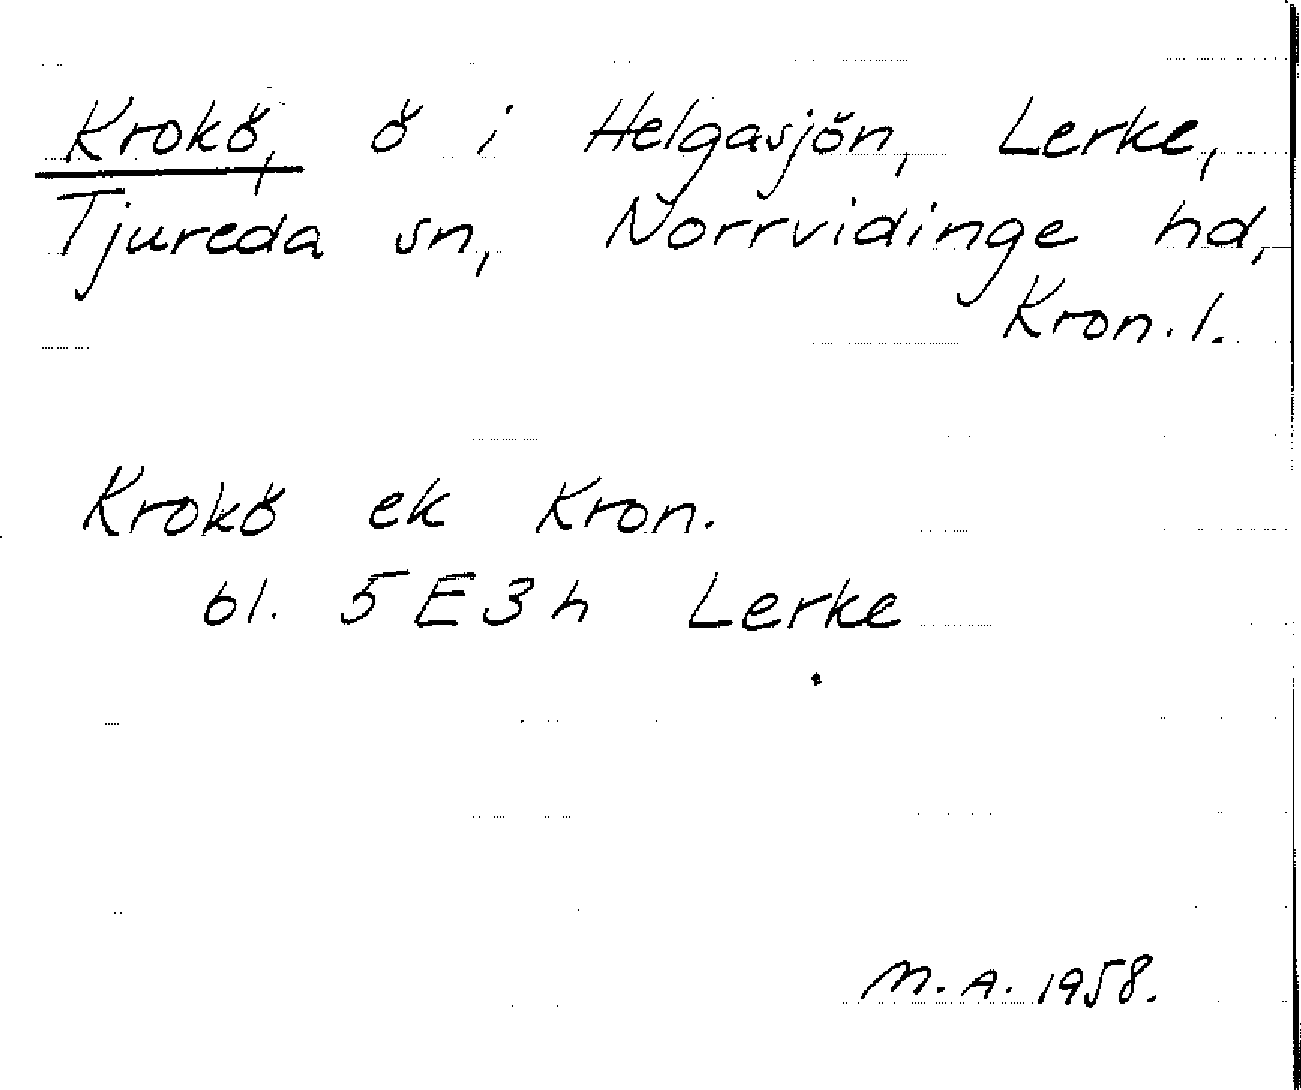 Krokö, ö i Helgasjön, Lerke,
Tjureda sn, Norrvidinge hd,
Kron. l.
Krokö ek Kron.
bl. 5E3h Lerke
M.A. 1958.